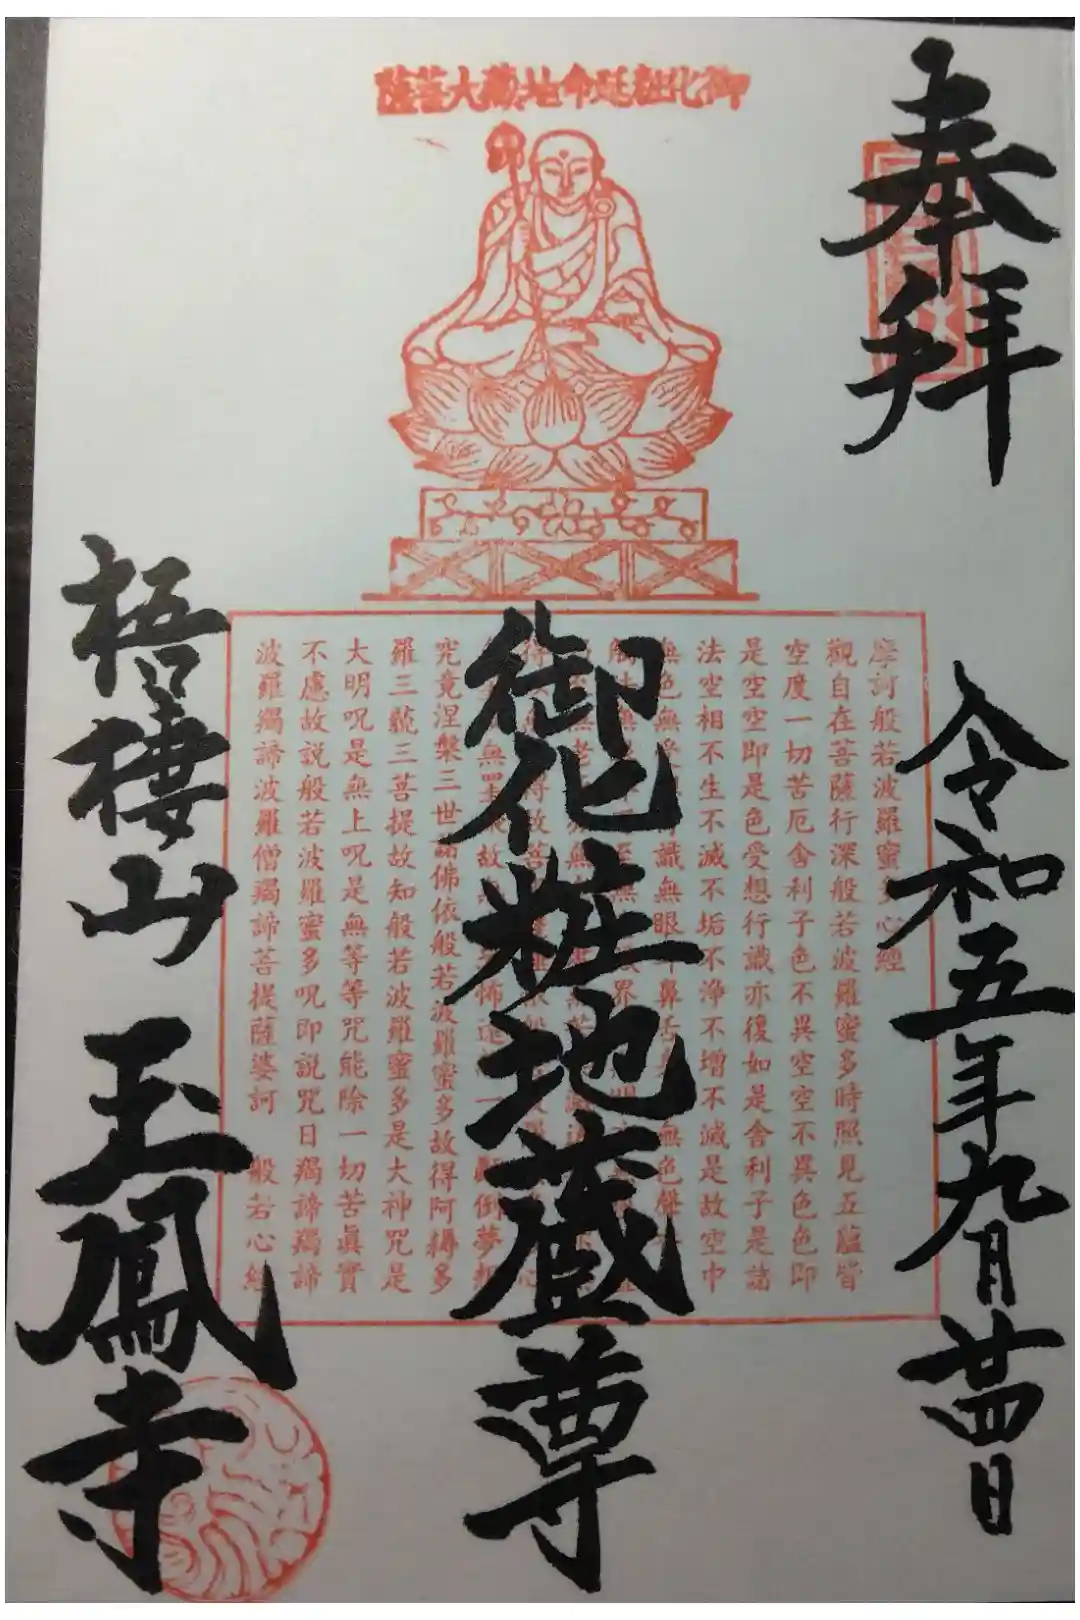 奉拝
令和五年九月廿四日
御化粧延命地蔵大菩薩
御化粧地蔵尊
摩訶般若波羅蜜多心經
觀自在菩薩行深般若波羅蜜多時照見五蘊皆
空度一切苦厄舍利子色不異空空不異色色即
是空空即是色受想行識亦復如是舍利子是諸
法空相不生不滅不垢不浄不増不減是故空中
無色無受 識無眼耳鼻舌 無色聲
究竟涅槃三世諸佛依般若波羅蜜多故得阿耨多
羅三藐三菩提故知般若波羅蜜多是大神咒是
大明呪是無上呪是無等等咒能除一切苦眞實
不虚故説般若波羅蜜多呪即説咒曰羯諦羯諦
波羅羯諦波羅僧羯諦菩提薩婆訶 般若心經
梧棲山 玉鳳寺